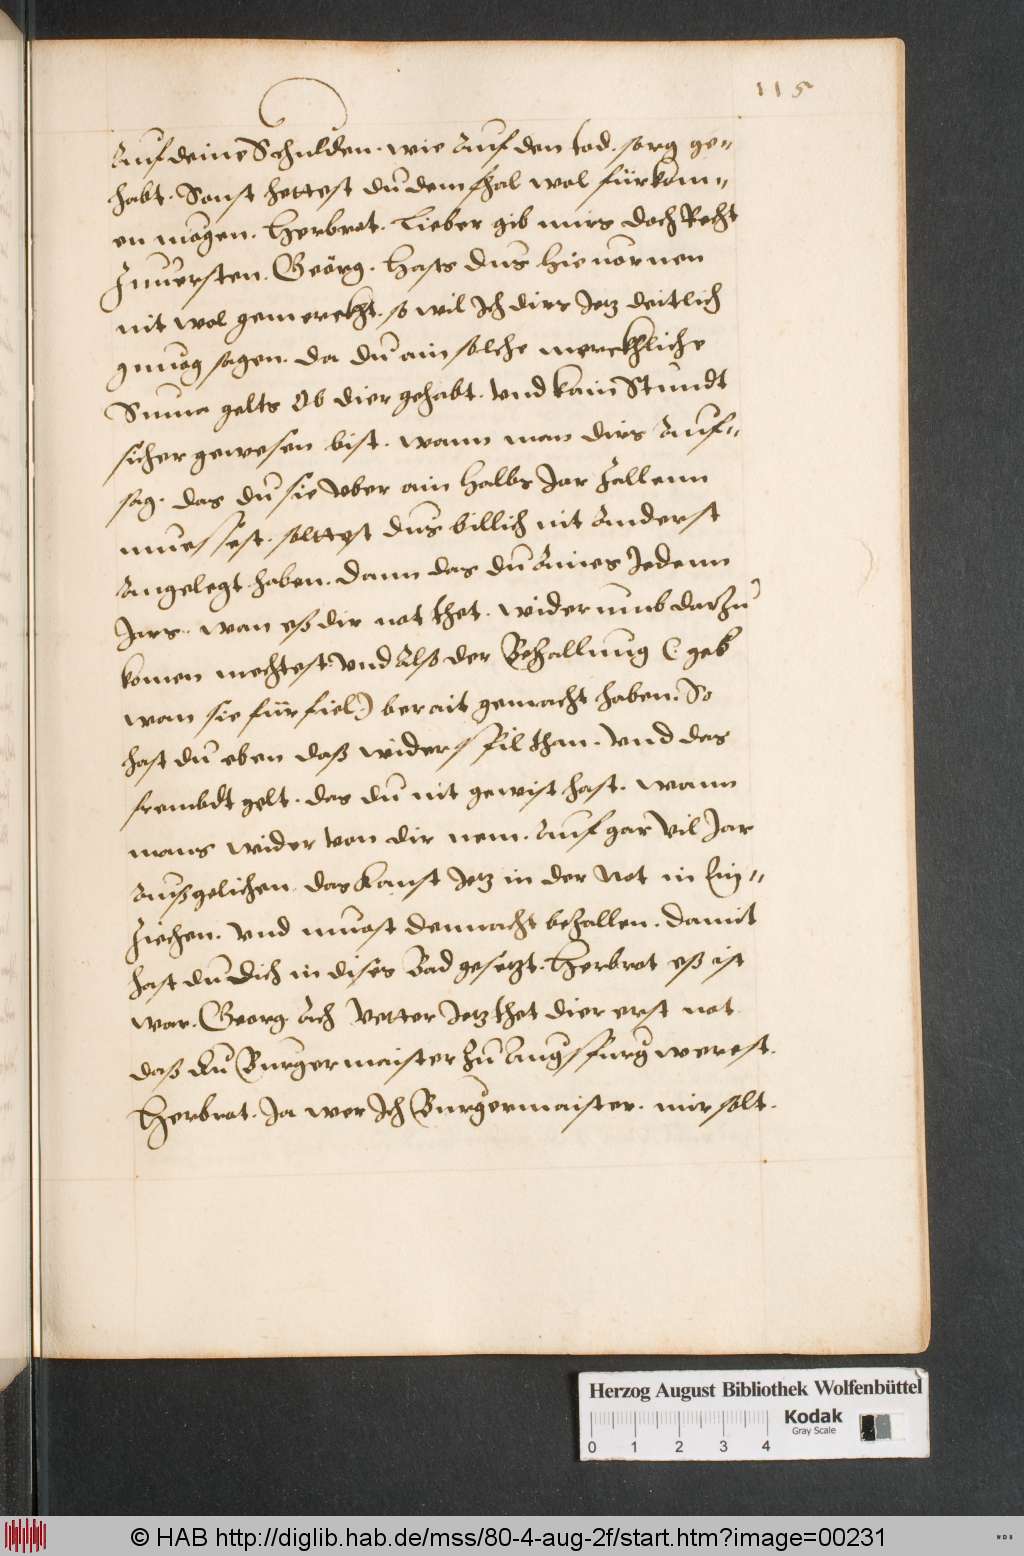 115
Auf deine Schulden. wie Auf den tod. sorg ge-
habt. Sonst hettest du dem fhal wol fürkom-
en mögen. Herbrot. Lieber gib mirs doch Recht
Zuuersten. Geörg. Hasts dus hieuornen
nit wol gemerckht. so wil Ich dirs Jetz deitlich
gnuog sagen. da du ain solche merckhliche
Suma gelts Ob dier gehabt. vnd kain Stundt
sicher gewesen bist. wann man dirs Auf-
sag. das du sie vber ain halbs Jar Zallenn
muessest. solttest dus billich nit Anderst
Angelegt haben. dann das du Aines Jedenn
Jars. wan eß dir not thet. widerumb darzu
komen mechtest vnd Alß der Bezallung (: geb
wan sie für fiel:) berait gemacht haben. So
hast du eben daß widerspil than. vnd das
frembdt gelt. das du nit gewist hast. wann
mans wider von dir nem. Auf gar vil Jar
Außgelichen. das kanst Jetz in der Not nit ein-
Ziechen. vnd muost dennacht bezallen. damit
hast du dich in dises Bad gesetzt. Herbrot eß ist
war. Georg. Ach Vetter Jetz thet dier erst not
daß du Burgermaister zu Augspurg werest.
Herbrot. Ja wer Ich Burgermaister. mir solt.
Herzog August Bibliothek Wolfenbüttel
Kodak
Gray Scale
0 1 2 3 4
© HAB http://diglib.hab.de/mss/80-4-aug-2f/start.htm?image=00231